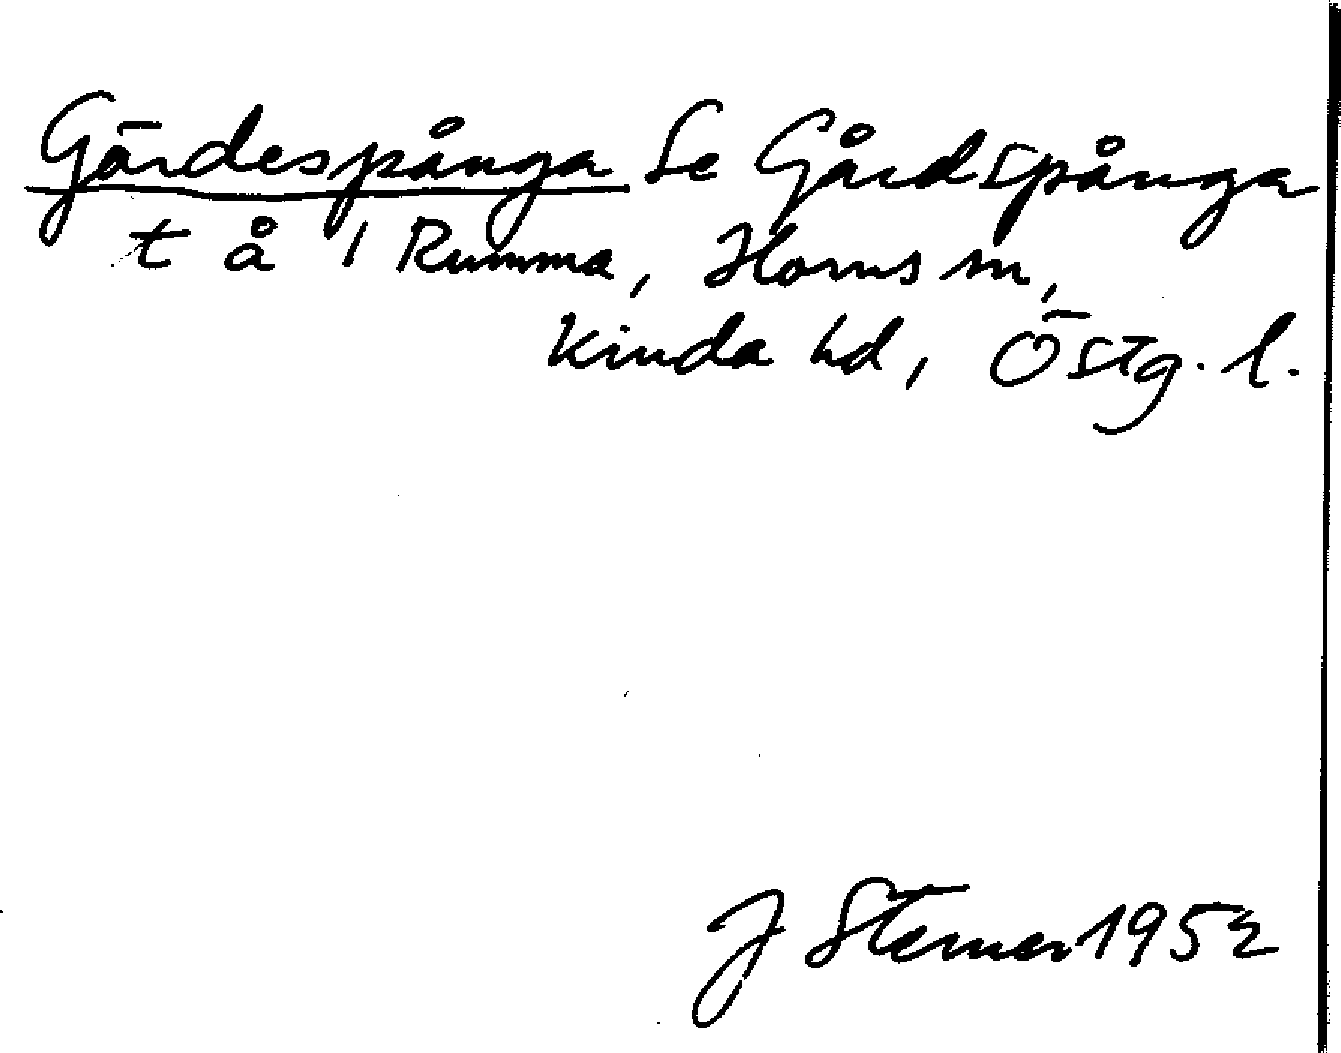 Gärdespånga Se Gårdspånga
t å i Rumma, Horns sn,
Kinda hd, Östg. l.
J Sterner 1952